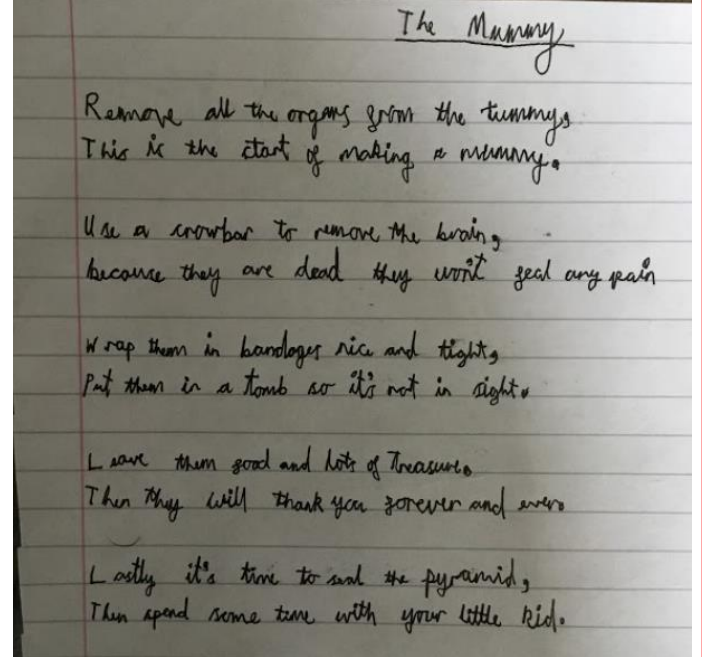 The Mummy
Remove all the organs from the tummy,
This is the start of making a mummy.
Use a crowbar to remove the brain,
because they are dead they won't feal any pain
Wrap them in bandages nice and tight,
Put them in a tomb so it's not in sight.
Leave them food and lots of Treasure.
Then they will thank you forever and ever.
Lastly it's time to seal the pyramid,
Then spend some time with your little kid.